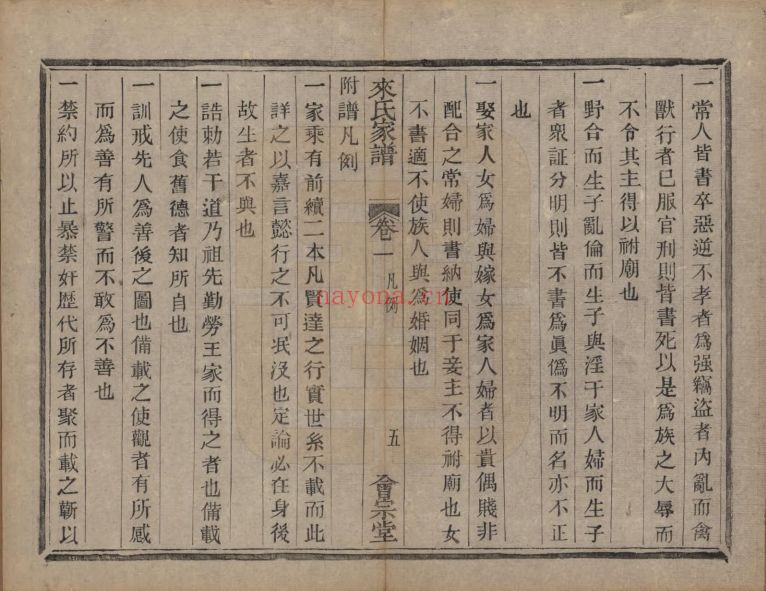 一常人皆書卒惡逆不孝者為强竊盜者內亂而禽
獸行者已服官刑則皆書死以是為族之大辱而
不令其主得以祔廟也
一野合而生子亂倫而生子與淫于家人婦而生子
者衆証分明則皆不書為眞僞不明而名亦不正
也
一娶家人女為婦與嫁女為家人婦者以貴偶賤非
配合之常婦則書納使同于妾主不得祔廟也女
不書適不使族人與為婚姻也
附譜凡例
來氏家譜 卷一 凡例 五 會宗堂
一家乘有前續二本凡賢達之行實世系不載而此
詳之以嘉言懿行之不可泯没也定論必在身後
故生者不與也
一誥勅若干道乃祖先勤勞王家而得之者也備載
之使食舊德者知所自也
一訓戒先人為善後之圖也備載之使觀者有所感
而為善有所警而不敢為不善也
一禁約所以止暴禁奸歴代所存者聚而載之蘄以
nayona.cn